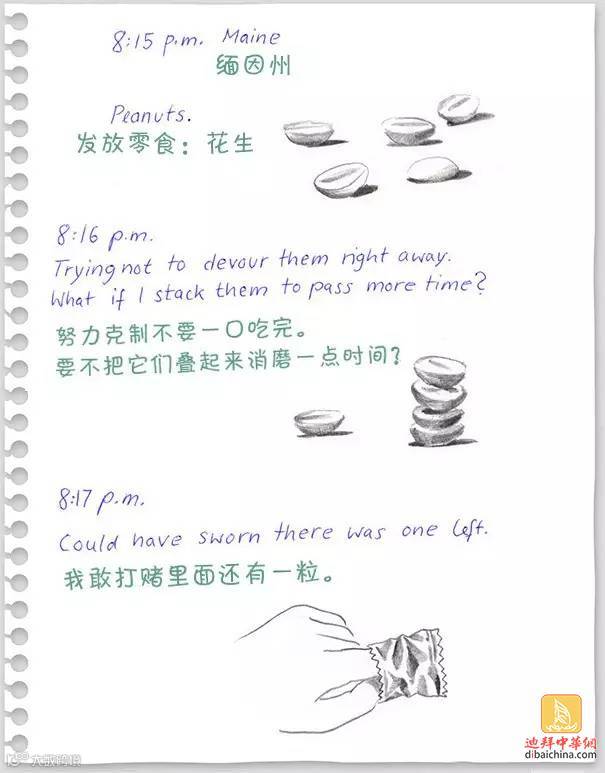 8:15 p.m. Maine
缅因州
Peanuts.
发放零食：花生
8:16 p.m.
Trying not to devour them right away.
What if I stack them to pass more time?
努力克制不要一口吃完。
要不把它们叠起来消磨一点时间？
8:17 p.m.
Could have sworn there was one left.
我敢打赌里面还有一粒。
迪拜中華網
dibaichina.com